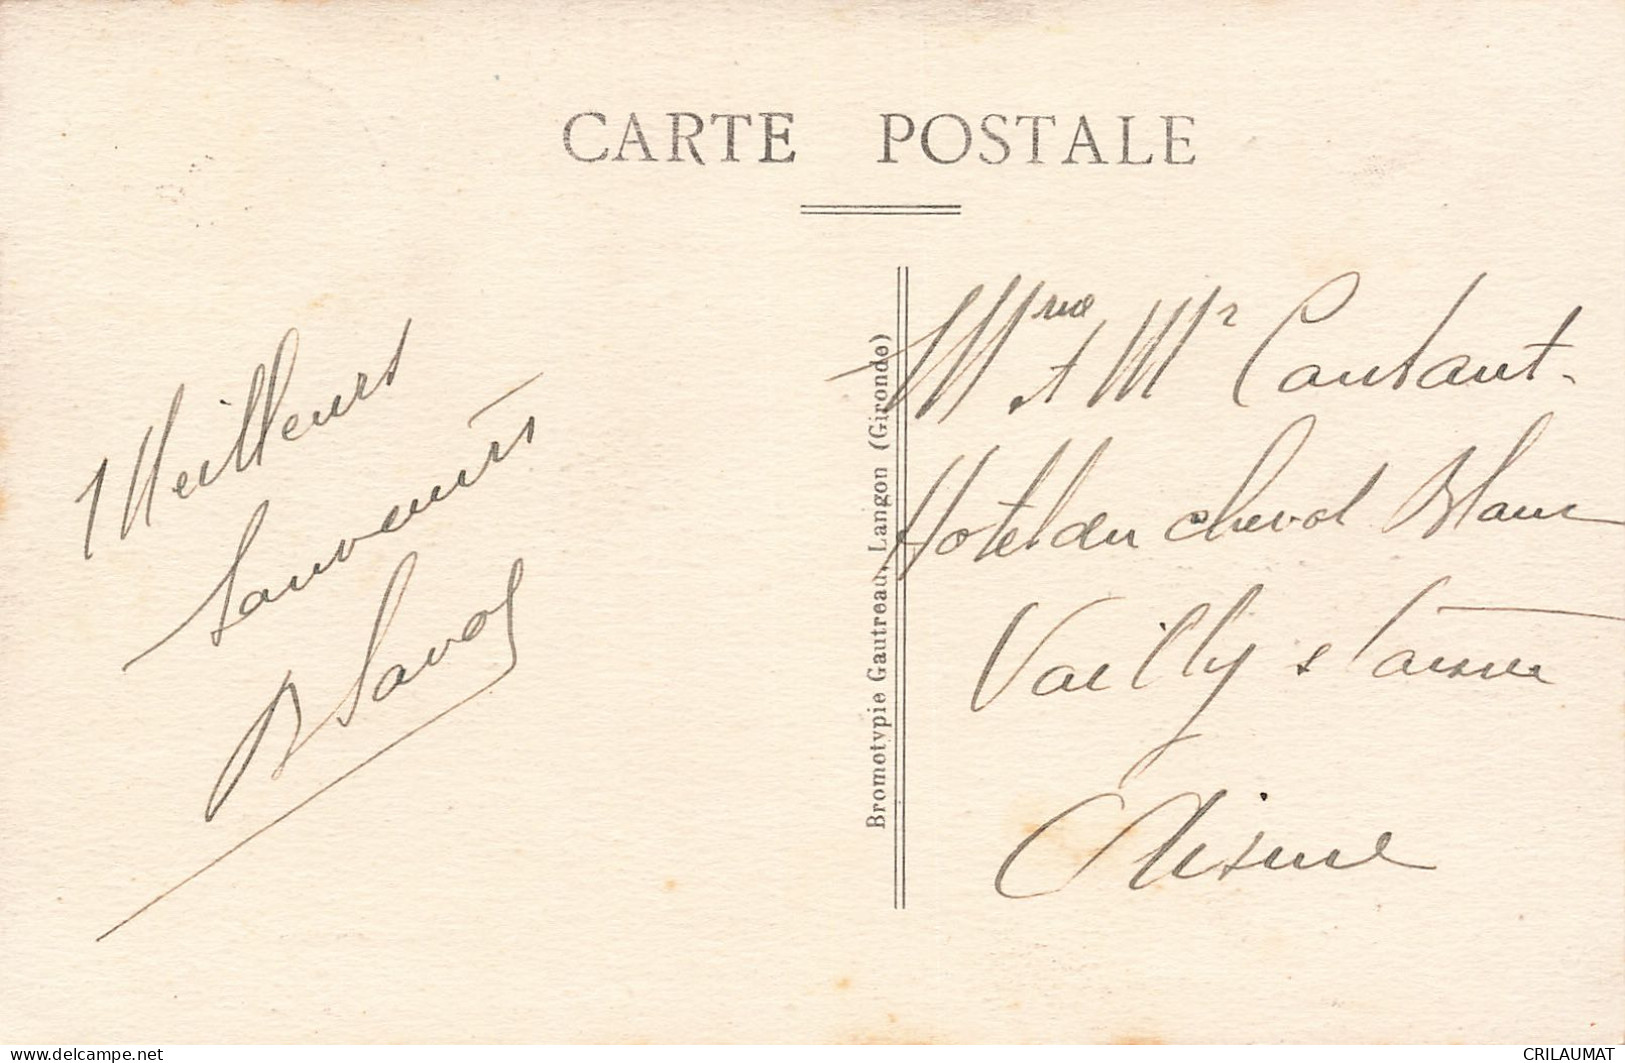 CARTE POSTALE
Meilleurs
Souvenirs
Mme et Mr
Hotel du cheval Blanc
Vailly s l'aisne
Aisne
Bromotypie Gautreau, Langon (Gironde)
www.delcampe.net
CRILAUMAT